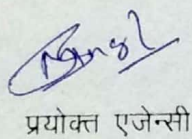 प्रयोक्त एजेन्सी